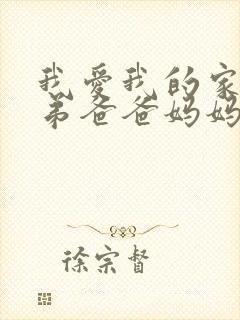 我爱我的家
弟爸爸妈妈
徐宗督